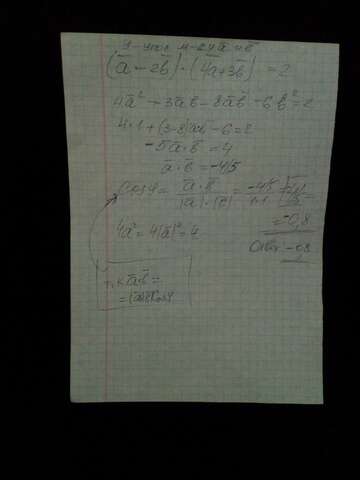 (a̅ - 2b̅) · (4a̅ + 3b̅) = 2
4a̅² + 3a̅b̅ - 8a̅b̅ - 6b̅² = 2
4·1 + (3-8)a̅b̅ - 6 = 2
-5a̅·b̅ = 4
a̅·b̅ = -4/5
Cos φ = a̅·b̅ / |a̅|·|b̅| = -4/5 / 1·1
= -0,8
4a̅² = 4|a̅|² = 4
Ответ -0,8
т.к a̅b̅ =
= |a̅||b̅|cosφ